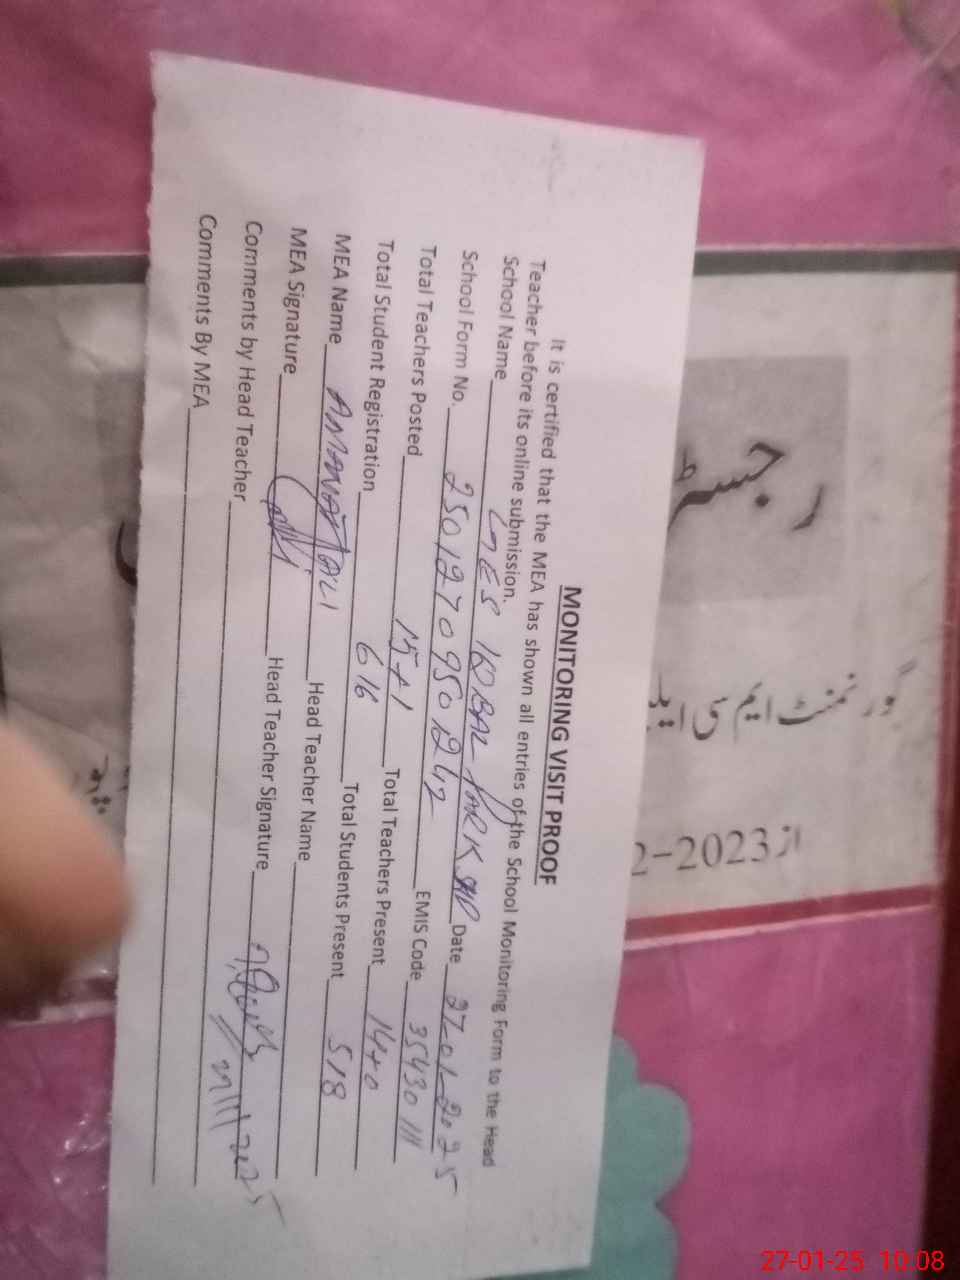 MONITORING VISIT PROOF
It is certified that the MEA has shown all entries of the School Monitoring Form to the Head
Teacher before its online submission.
School Name GES IQBAL PARK Date 27-01-2025
School Form No. 25012709501242 EMIS Code 35430111
Total Teachers Posted 15+1 Total Teachers Present 14+0
Total Student Registration 616 Total Students Present 518
MEA Name AMANAT ALI Head Teacher Name
MEA Signature Head Teacher Signature
Comments by Head Teacher
Comments By MEA
رجسٹر
گورنمنٹ ایم سی
2-2023 از
27-01-25 10:08